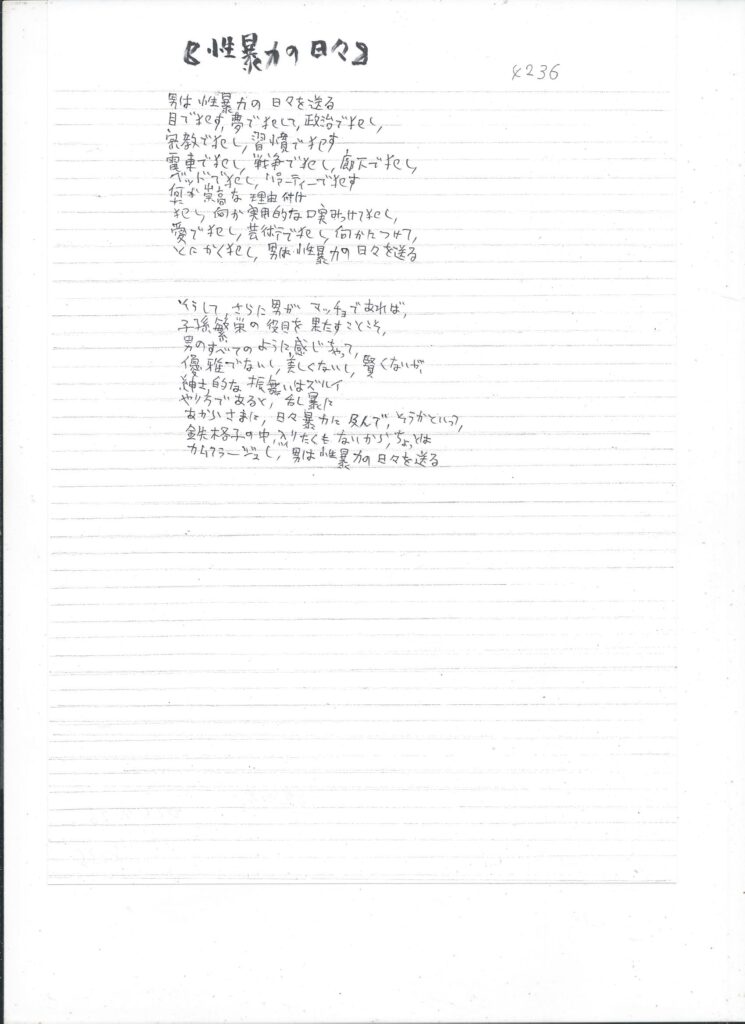 《性暴力の日々》
4236
男は性暴力の日々を送る
目で犯す,夢で犯して,政治で犯し,
宗教で犯し,習慣で犯す,
電車で犯し,戦争で犯し,廊下で犯し,
ベッドで犯し,パーティーで犯す
何か崇高な理由付け
犯し,何か実用的な口実みつけて犯し,
愛で犯し,芸術で犯し,何かにつけて,
とにかく犯し,男は性暴力の日々を送る
そうして,さらに男がマッチョであれば,
子孫繁栄の役目を果たすことこそ,
男のすべてのように,感じあって,
優雅でないし,美しくないし,賢くないが,
紳士的な振舞いはズルイ
やり方であると,乱暴に
あからさまに,日々暴力に及んで,そうかといって,
鉄格子の中,入りたくもないから,ちょっとは
カムフラージュし,男は性暴力の日々を送る